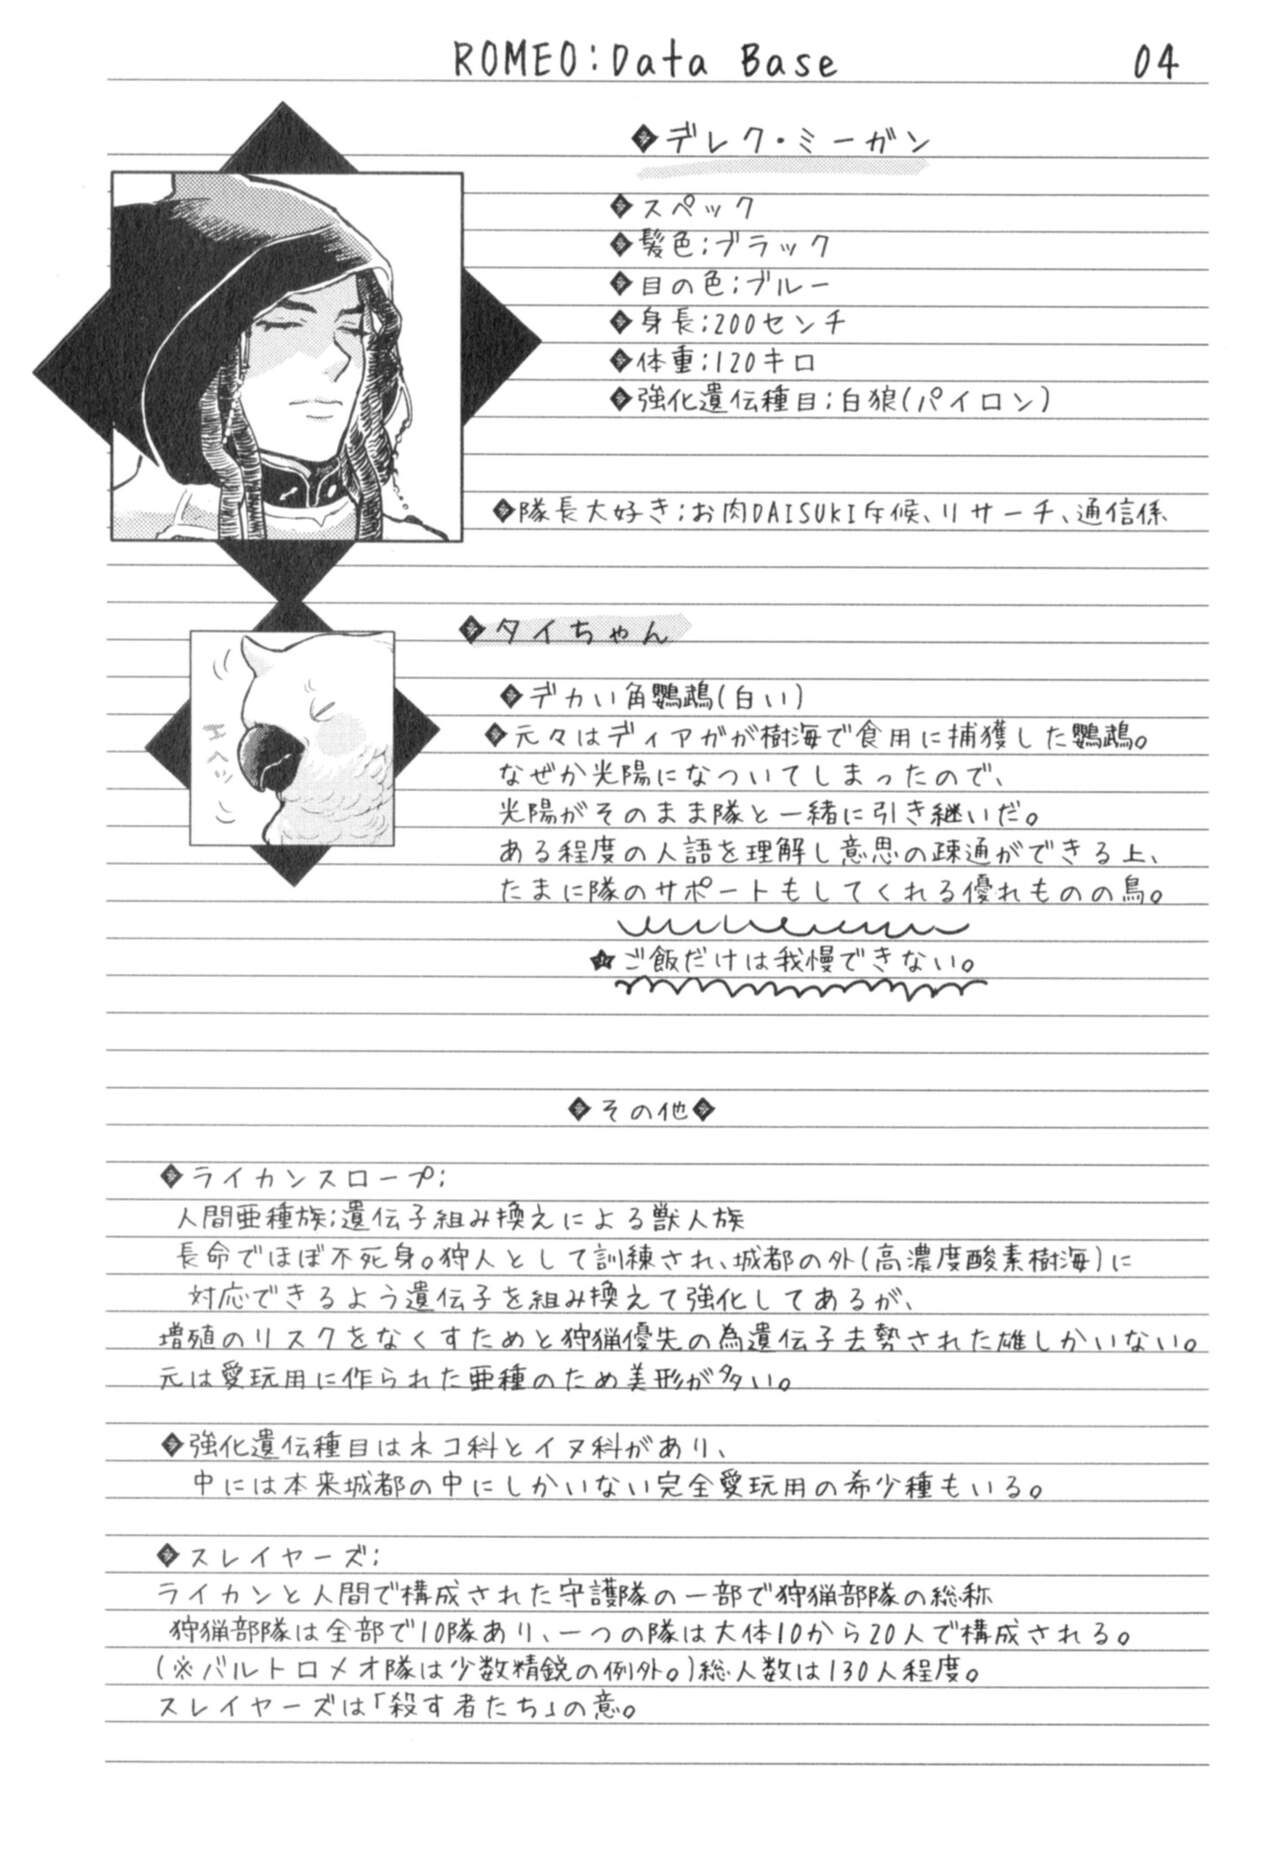 ROMEO:Data Base
04
デレク・ミーガン
スペック
髪色;ブラック
目の色;ブルー
身長;200センチ
体重;120キロ
強化遺伝種目;白狼(パイロン)
隊長大好き;お肉DAISUKI斥候、リサーチ、通信係
タイちゃん
エヘッ
デカい角鸚鵡(白い)
元々はディアガが樹海で食用に捕獲した鸚鵡。
なぜか光陽になついてしまったので、
光陽がそのまま隊と一緒に引き継いだ。
ある程度の人語を理解し意思の疎通ができる上、
たまに隊のサポートもしてくれる優れものの鳥。
★ご飯だけは我慢できない。
その他
ライカンスロープ;
人間亜種族;遺伝子組み換えによる獣人族
長命でほぼ不死身。狩人として訓練され、城都の外(高濃度酸素樹海)に
対応できるよう遺伝子を組み換えて強化してあるが、
増殖のリスクをなくすためと狩猟優先の為遺伝子去勢された雄しかいない。
元は愛玩用に作られた亜種のため美形が多い。
強化遺伝種目はネコ科とイヌ科があり、
中には本来城都の中にしかいない完全愛玩用の希少種もいる。
スレイヤーズ;
ライカンと人間で構成された守護隊の一部で狩猟部隊の総称
狩猟部隊は全部で10隊あり、一つの隊は大体10から20人で構成される。
(※バルトロメオ隊は少数精鋭の例外。)総人数は130人程度。
スレイヤーズは「殺す者たち」の意。